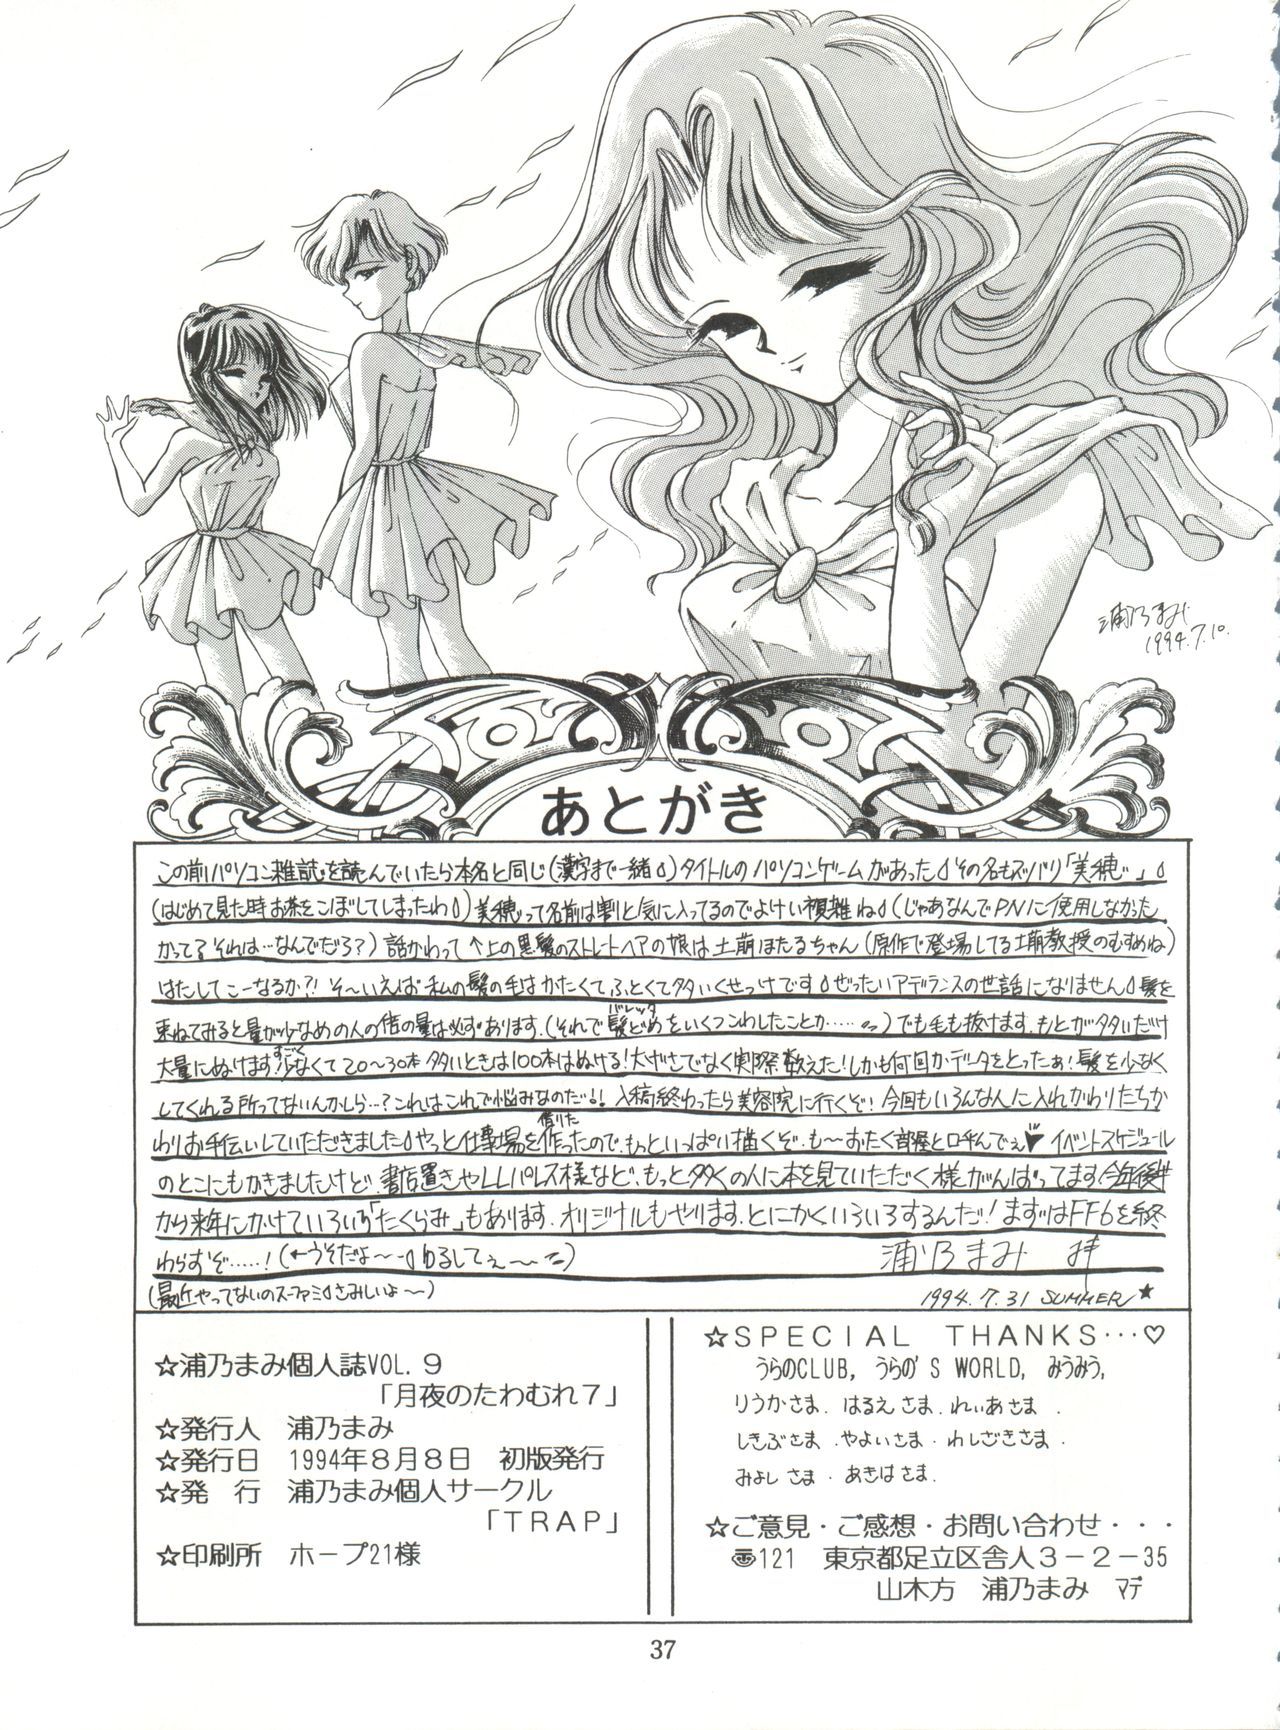 浦乃まみ
1994.7.10.
あとがき
この前パソコン雑誌を読んでいたら本名と同じ(漢字まで一緒)タイトルのパソコンゲームがあった その名もズバリ「美穂」
(はじめて見た時お茶をこぼしてしまったわ)美穂って名前は割と気に入ってるのでよけい複雑ね(じゃあなんでPNに使用しなかった
かって?それは…なんでだろ?)話かわって↑上の黒髪のストレートヘアの娘は土萠ほたるちゃん(原作で登場してる土萠教授のむすめね)
はたしてこーなるか?!そ〜いえば私の髪の毛はかたくてふとくて多いくせっけです ぜったいアデランスの世話になりません 髪を
束ねてみると量が少なめの人の倍の量は必ずあります.(それで髪どめ(バレッタ)をいくつこわしたことか……)でも毛も抜けます.もとが多いだけ
大量にぬけます!すごく少なくて20〜30本多いときは100本はぬける!大げさでなく実際数えた!しかも何回かデータをとったぁ!髪を少なく
してくれる所ってないんかしら…?これはこれで悩みなのだ!!入稿終わったら美容院に行くぞ!今回もいろんな人に入れかわりたちか
わりお手伝いしていただきました やっと仕事場を借りた作ったので.もっといっぱい描くぞ.も〜おたく部屋と呼んでぇ♥イベントスケジュール
のとこにもかきましたけど.書店置きやLLパレス様など.もっと多くの人に本を見ていただく様がんばってます!今年後半
から来年にかけていろいろ「たくらみ」もあります.オリジナルもやります.とにかくいろいろするんだ!まずはFF6を終
わらすぞ……!(←うそだよ〜 ゆるしてぇ〜)
浦乃まみ 拝
(最近やってないのスーファミ さみしいよ〜)
1994.7.31 SUMMER★
☆浦乃まみ個人誌VOL.9
「月夜のたわむれ7」
☆発行人 浦乃まみ
☆発行日 1994年8月8日 初版発行
☆発 行 浦乃まみ個人サークル
「TRAP」
☆印刷所 ホープ21様
☆SPECIAL THANKS…♡
うらのCLUB, うらの'S WORLD, みうみう,
りうかさま.はるえさま.れいあさま.
しきぶさま.やよいさま.わしざきさま.
みよしさま.あきはさま.
☆ご意見・ご感想・お問い合わせ・・・
〠121 東京都足立区舎人3-2-35
山木方 浦乃まみ マデ
37